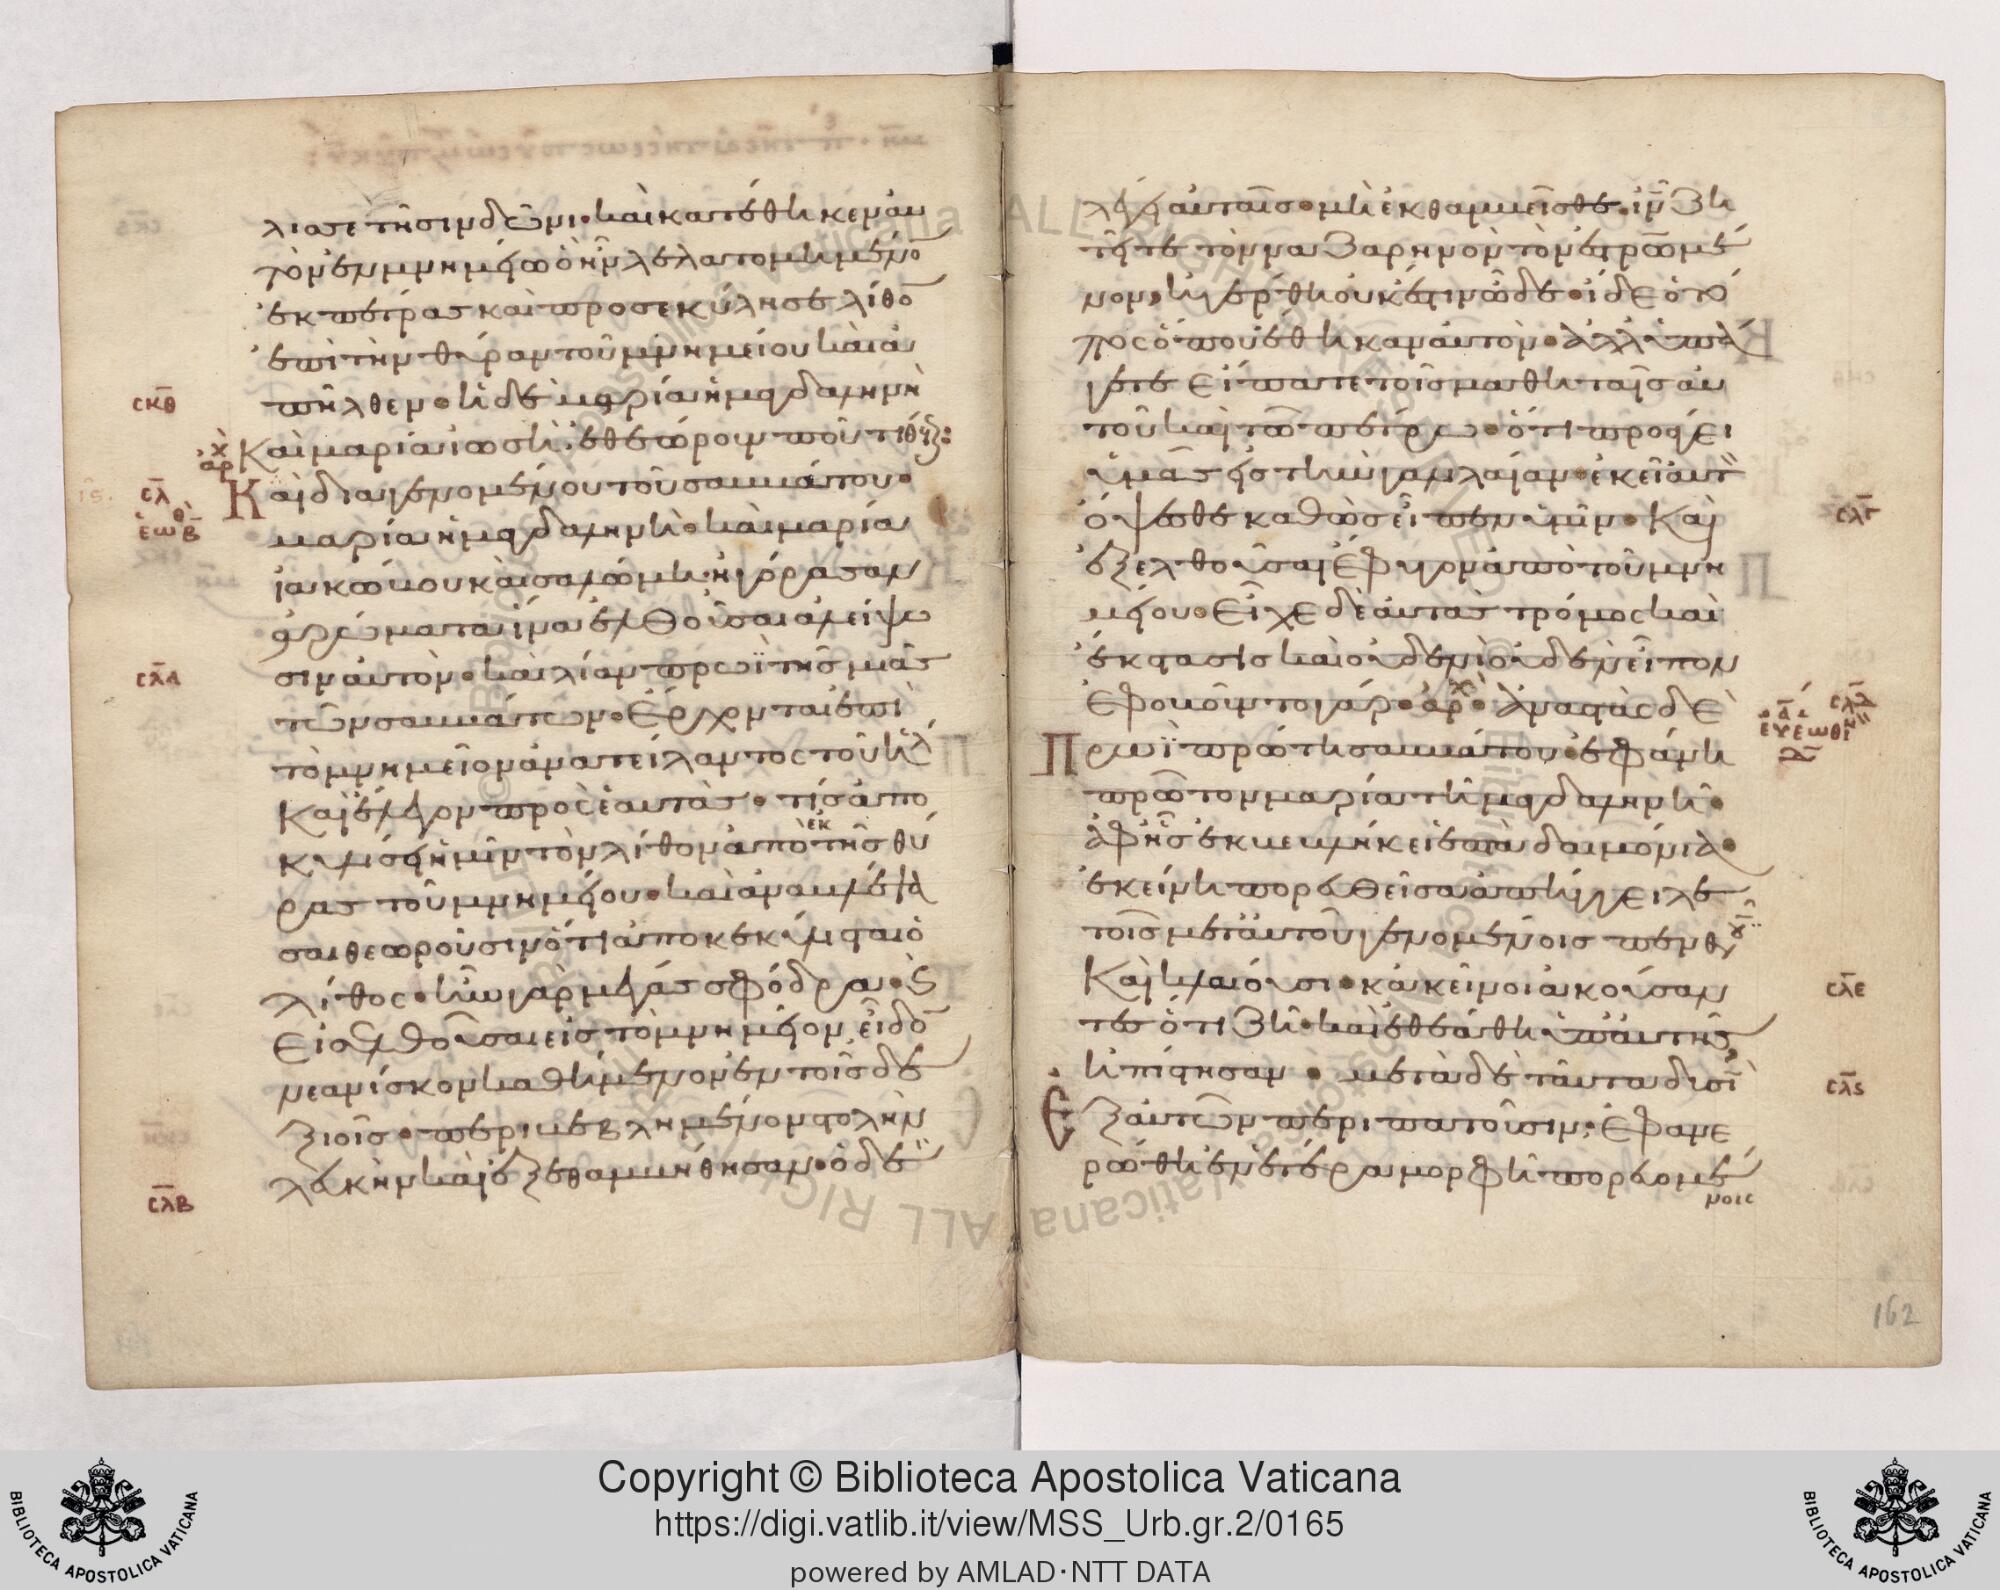 λισε τῆ σινδῶνι· καὶ κατέθηκεν αὐ
τὸν ἐν μνημείω ὃ ἦν λελατομημένο
ἐκ πέτρας καὶ προσεκύλησε λίθο
ἐπὶ τὴν θύραν τοῦ μνημείου καὶ ἀ
πῆλθεν· ἡ δὲ μαρία ἡ μαγδαληνὴ
σκθ
Καὶ μαρία ἰωσῆ ἐθεώρουν ποῦ τίθ
Καὶ διαγενομένου τοῦ σαββάτου·
σλ
μαρία ἡ μαγδαληνὴ· καὶ μαρία
ἰακώβου καὶ σαλώμη· ἠγόρασαν
ἀρώματα ἵνα ἐλθοῦσαι ἀλείψω
σιν αὐτὸν· καὶ λίαν πρωῒ τῆς μιᾶς
σλα
τῶν σαββάτων· Ἔρχονται ἐπὶ
τὸ μνημεῖον ἀνατείλαντος τοῦ ἡλ
Καὶ ἔλεγον πρὸς ἑαυτὰς· τίς ἀπο
κυλίσει ἡμῖν τὸν λίθον ἀπὸ τῆς θύ
ἐκ
ρας τοῦ μνημείου· καὶ ἀναβλέψα
σαι θεωροῦσιν ὅτι ἀποκεκύλισται ὁ
λίθος· ἦν γὰρ μέγας σφόδρα· ς
Εἰσελθοῦσαι εἰς τὸ μνημεῖον εἶδο
νεανίσκον καθήμενον ἐν τοῖς δε
ξιοῖς· περιβεβλημένον στολὴν
λευκὴν καὶ ἐξεθαμβήθησαν· ὁ δὲ
σλβ
λέγει αὐταῖς· μὴ ἐκθαμβεῖσθε· ἰν ζη
τεῖτε τὸν ναζαρηνὸν τὸν ἐσταυρωμέ
νον, ἠγέρθη οὐκ ἔστιν ὧδε· ἴδε ὁ τό
πος ὅπου ἔθηκαν αὐτὸν· ἀλλ' ὑπά
γετε εἴπατε τοῖς μαθηταῖς αὐ
τοῦ καὶ τῶ πέτρω· ὅτι προάγει
ὑμᾶς εἰς τὴν γαλιλαίαν· ἐκεῖ αὐτ
ὄψεσθε καθὼς εἶπεν ὑμῖν· Καὶ
σλγ
ἐξελθοῦσαι ἔφυγον ἀπὸ τοῦ μνη
μείου· Εἶχε δὲ αὐτὰς τρόμος καὶ
ἔκστασις καὶ οὐδενὶ οὐδὲν εἶπον
Ἐφοβοῦντο γάρ· ἀρχ Ἀναστὰς δὲ
σλδ
Πρωῒ πρώτη σαββάτου· ἐφάνη
πρῶτον μαρία τῆ μαγδαληνῆ·
ἀφ' ἧς ἐκβεβλήκει ἑπτὰ δαιμόνια·
ἐκείνη πορευθεῖσα ἀπήγγειλε
τοῖς μετ' αὐτοῦ γενομένοις πενθ
Καὶ κλαίουσι· κἀκεῖνοι ἀκούσαν
σλε
τες ὅτι ζῆ· καὶ ἐθεάθη ὑπ' αὐτῆς
ἠπίστησαν· μετὰ δὲ ταῦτα δυσὶ
σλς
Ἐξ αὐτῶν περιπατοῦσιν· ἐφανε
ρώθη ἐν ἑτέρα μορφῆ πορευομέ
νοις
162
Copyright © Biblioteca Apostolica Vaticana
https://digi.vatlib.it/view/MSS_Urb.gr.2/0165
powered by AMLAD·NTT DATA
BIBLIOTECA APOSTOLICA VATICANA
BIBLIOTECA APOSTOLICA VATICANA